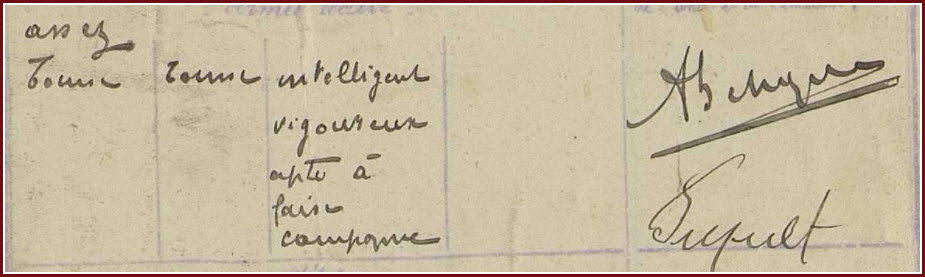 assez
bonne bonne intelligent
vigoureux
apte à
faire
campagne